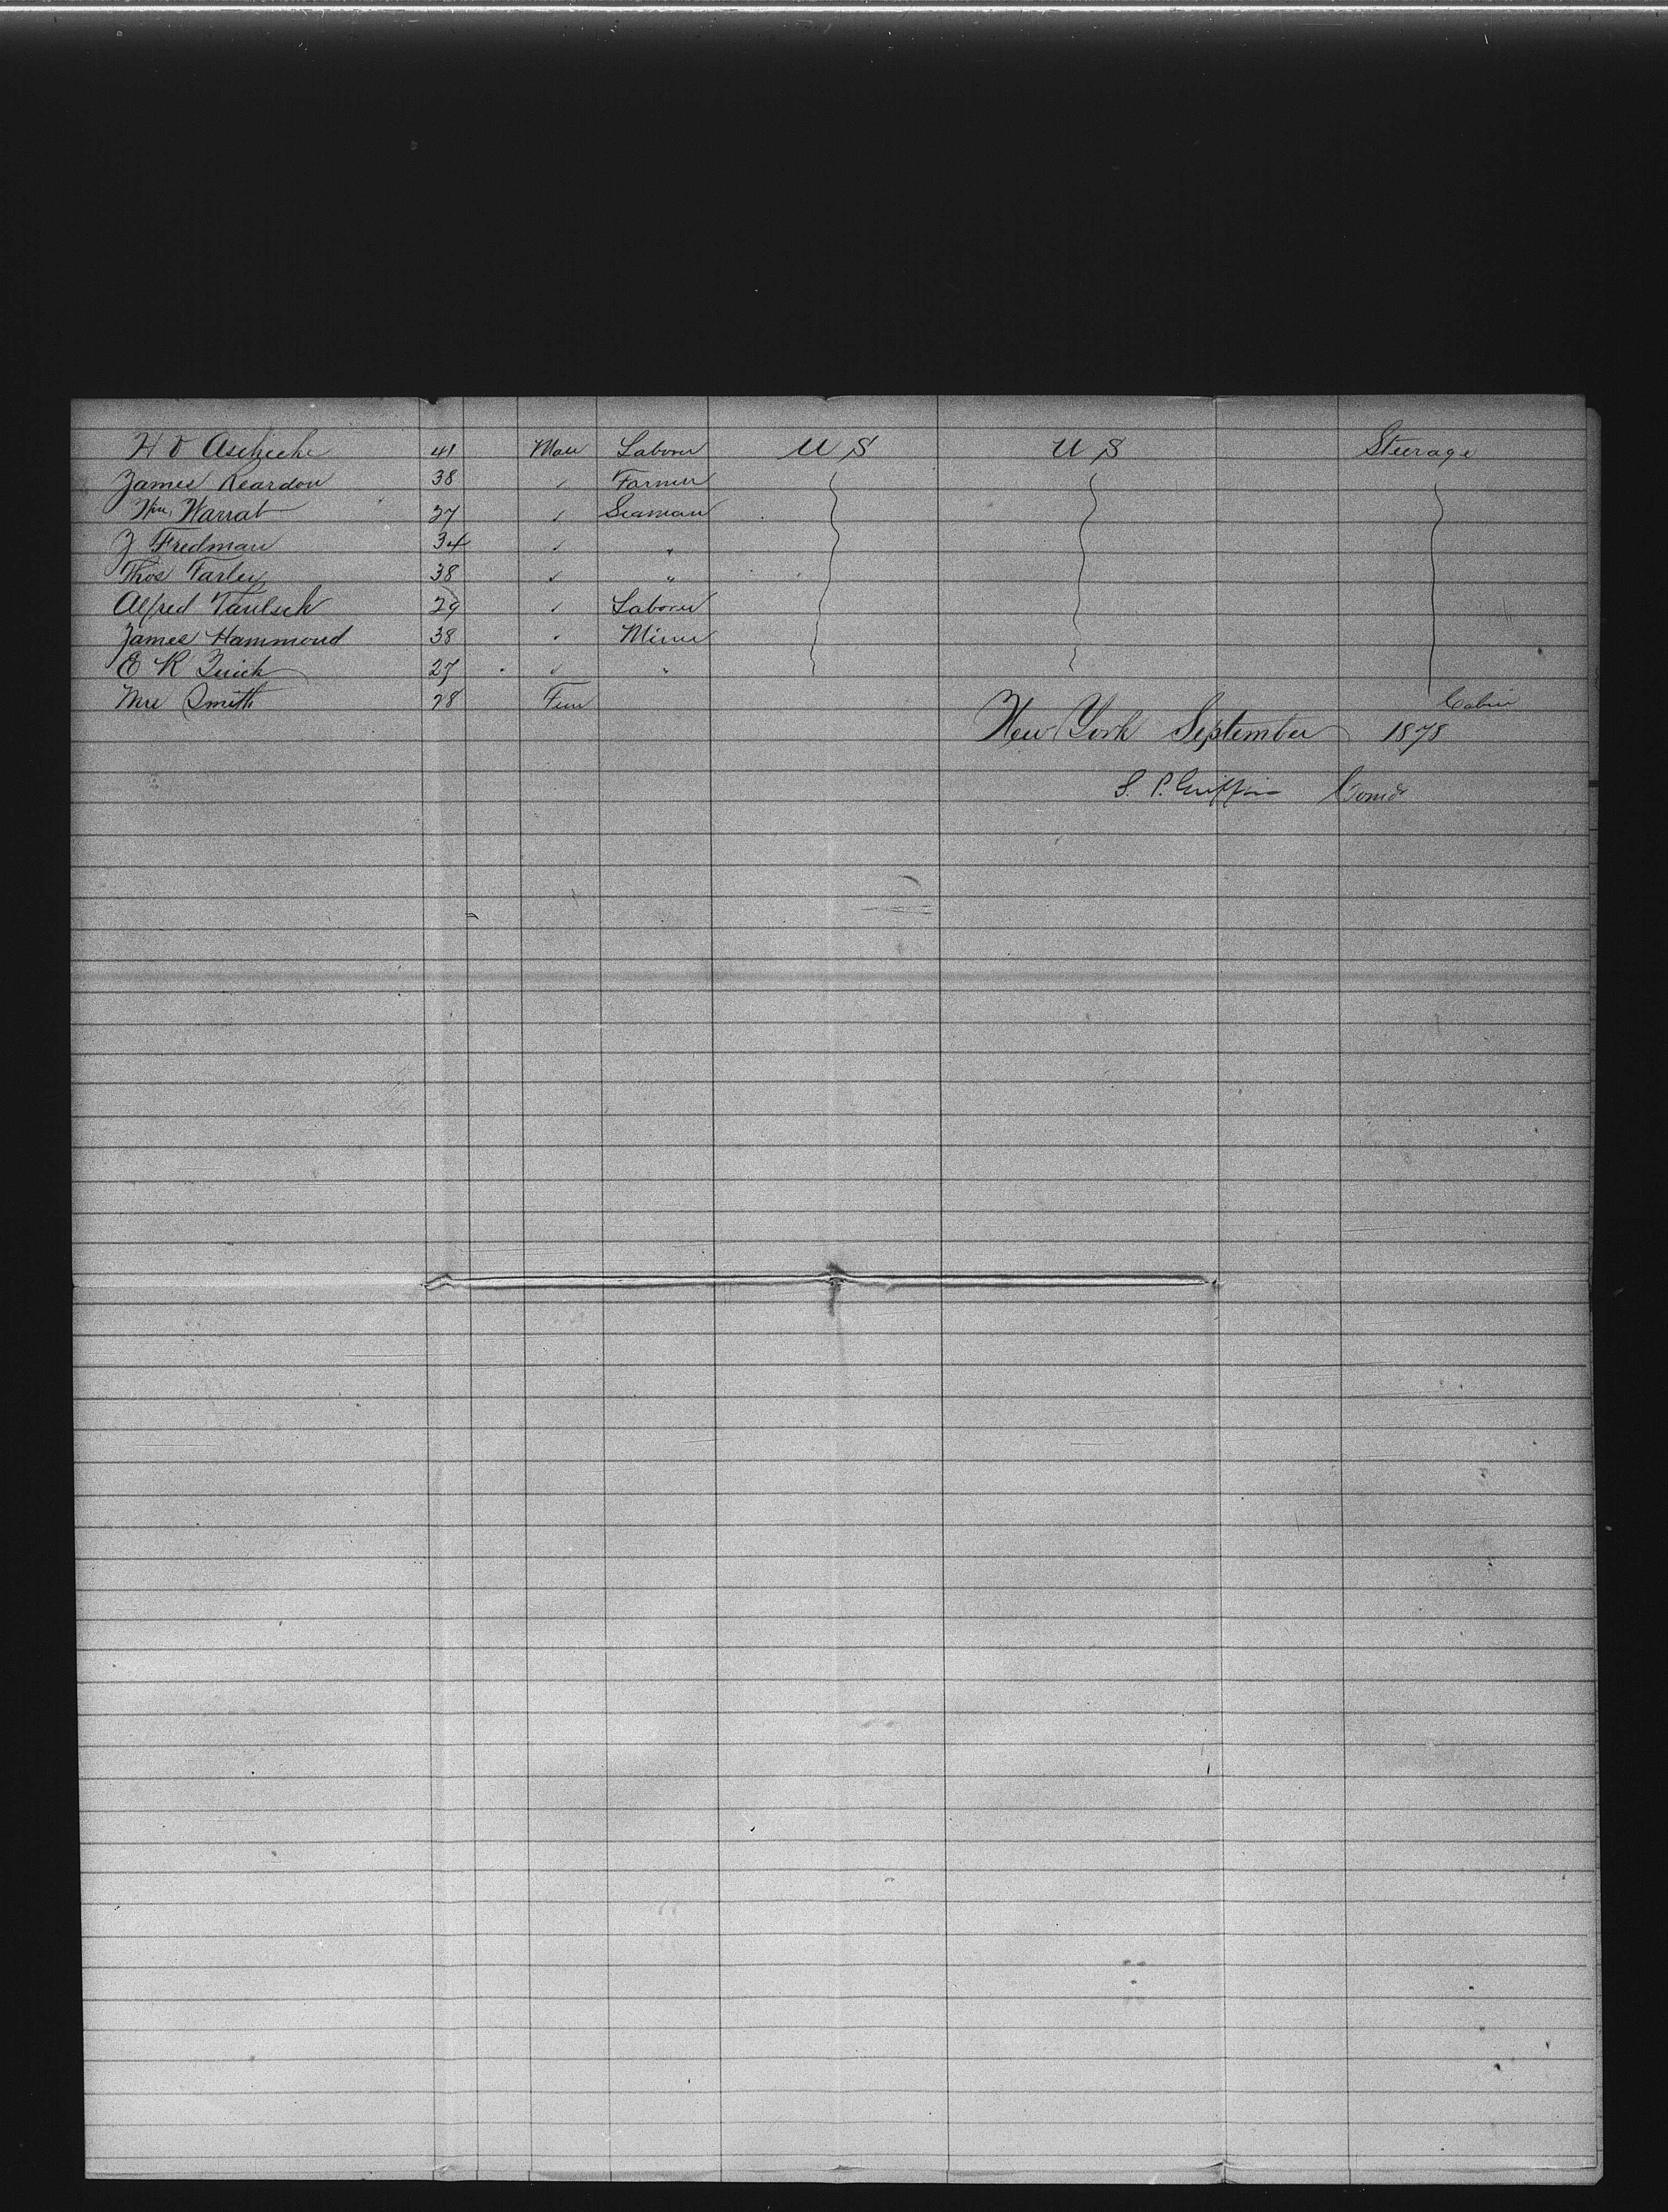 H D Aschiche 41 Male Laborer U S U S Steerage
James Reardon 38 " Farmer
Wm Warrat 27 " Seaman
J Fredman 34 " "
Thos Farley 38 " "
Alfred 29 " Laborer
James Hammond 38 " Miner
E R Quick 27 " "
Mrs Smith 28 Fem Cabin
New York September 1878
S. P. Griffin Comdr